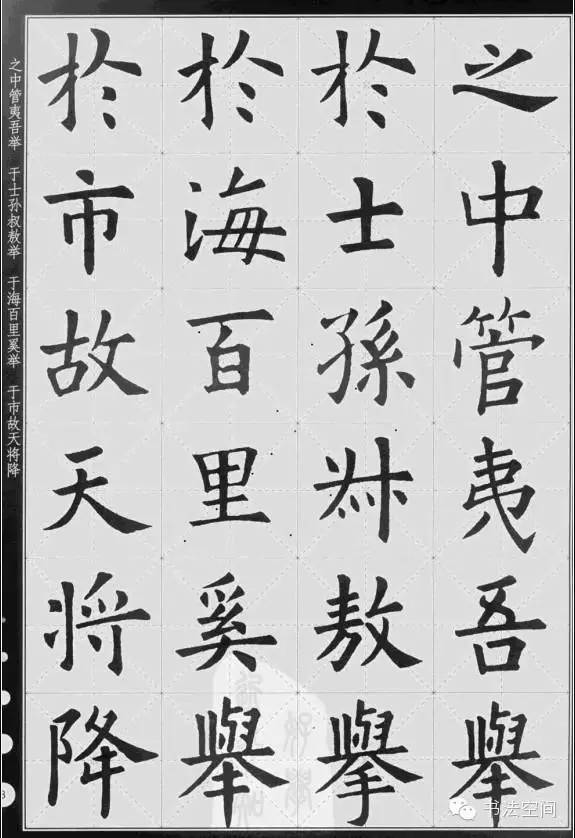 之中管夷吾舉
於士孫叔敖舉
於海百里奚舉
於市故天将降
之中管夷吾举 于士孙叔敖举 于海百里奚举 于市故天将降
书法空间